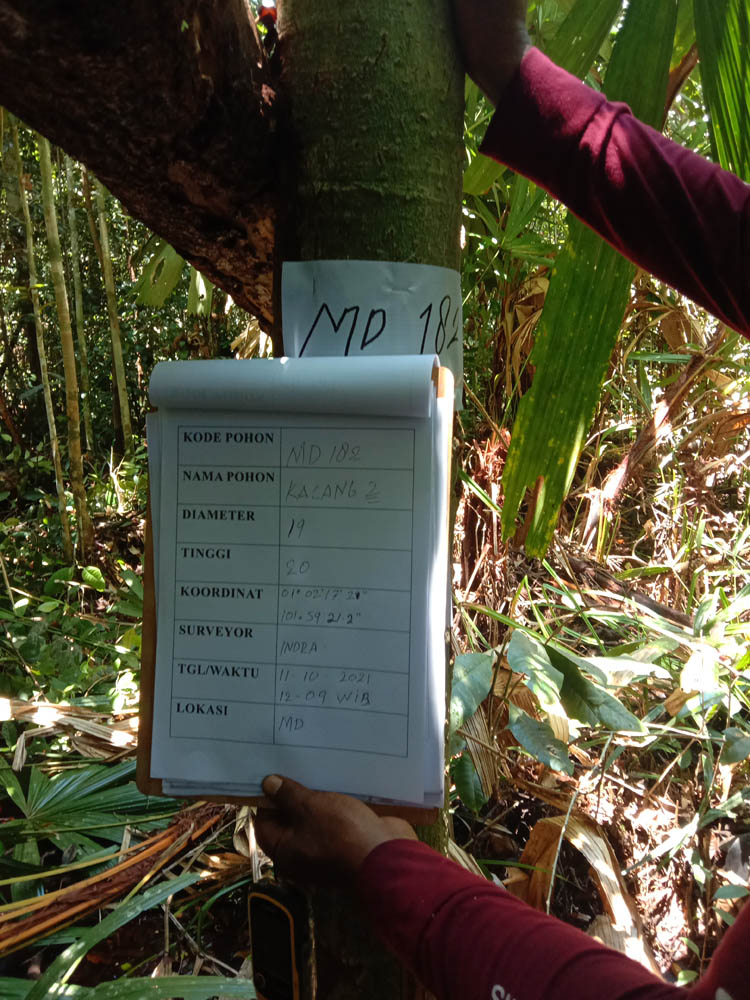 MD 182
KODE POHON MD 182
NAMA POHON KALANG 2
DIAMETER 19
TINGGI 20
KOORDINAT
101. 59 21.2"
SURVEYOR INDRA
TGL/WAKTU 11-10-2021
12-09 WIB
LOKASI MD